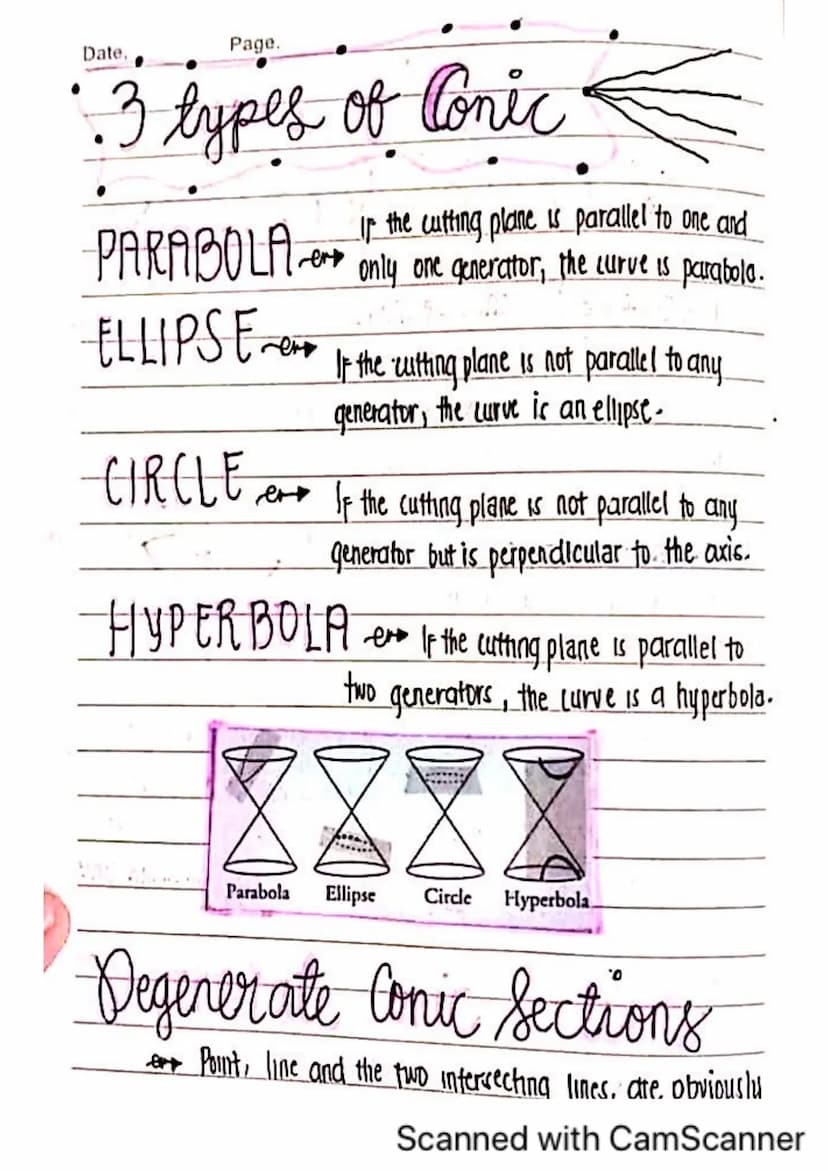 Date.
Page.
3 types of Conic
PARABOLA If the cutting plane is parallel to one and
only one generator, the curve is parabola.
ELLIPSE If the cutting plane is not parallel to any
generator, the curve is an ellipse.
CIRCLE If the cutting plane is not parallel to any
generator but is perpendicular to the axis.
HYPERBOLA If the cutting plane is parallel to
two generators, the curve is a hyperbola.
Parabola Ellipse Circle Hyperbola
Degenerate Conic Sections
Point, line and the two intersecting lines. are. obviously
Scanned with CamScanner